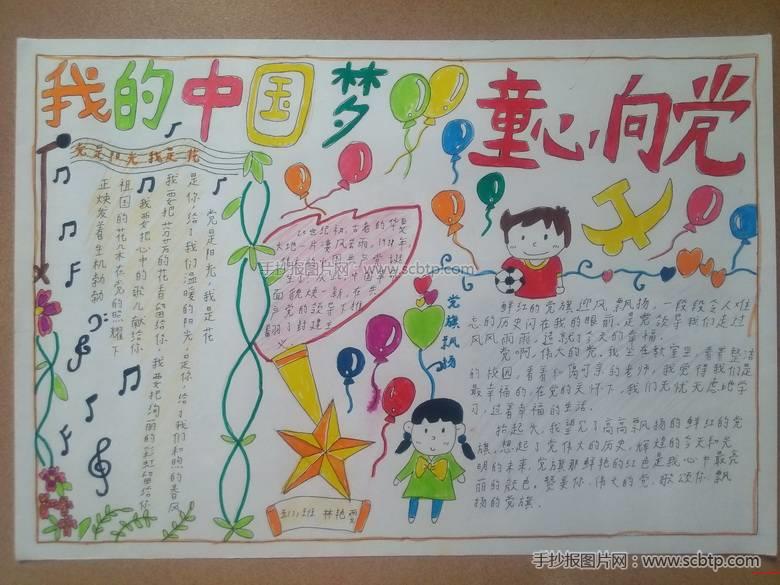 我的中国梦
童心向党
党是阳光 我是花
党是阳光,我是花
是你,给了我们温暖的阳光,是你,给了我们和煦的春风
我要把芬芳的花香留给你,我要把绚丽的彩虹留给你
我要把心中的歌儿献给你
祖国的花儿木在党的照耀下
正焕发着生机勃勃
20世纪初,古老的华夏
大地一片凄风苦雨,1921年,
面貌焕一新,在共
产党的领导下推
翻了封建主
义
党旗飘扬
鲜红的党旗迎风飘扬,一段段令人难
忘的历史闪在我的眼前,是党领导我们走过
风风雨雨,造就了今天的幸福。
党啊,伟大的党,我坐在教室里,看着整洁
的校园,看着和蔼可亲的老师,我觉得我们是
最幸福的,在党的关怀下,我们无忧无虑地学
习,过着幸福的生活。
抬起头,我望见了高高飘扬的鲜红的党
旗,想起了党伟大的历史,辉煌的今天和光
明的未来,党旗那鲜艳的红色是我心中最亮
丽的颜色,赞美你,伟大的党,歌颂你,飘
扬的党旗。
五(1)班 林艳雯
手抄报图片网:www.scbtp.com
手抄报图片网:www.scbtp.com